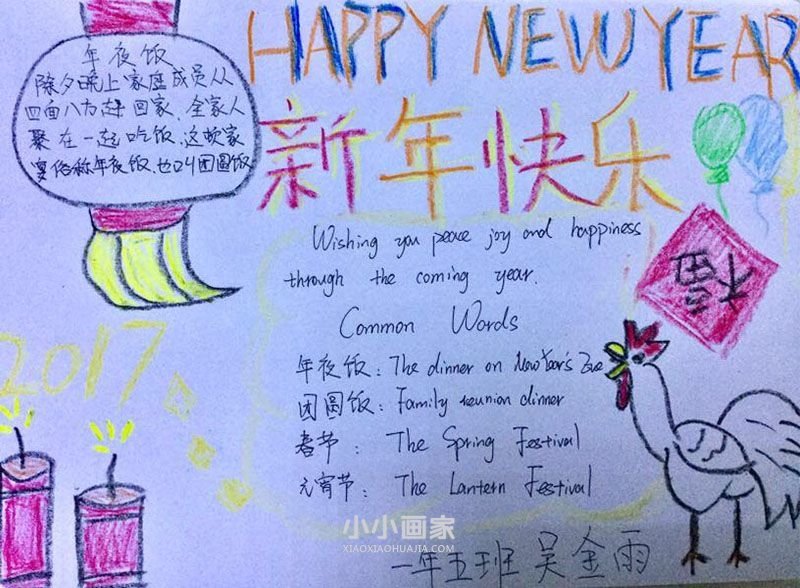 HAPPY NEW YEAR
新年快乐
年夜饭
除夕晚上家庭成员从
四面八方赶回家、全家人
聚在一起吃饭、这顿家
宴俗称年夜饭、也叫团圆饭
Wishing you peace joy and happiness
through the coming year.
Common Words
年夜饭: The dinner on New Year's Eve
团圆饭: Family reunion dinner
春节: The Spring Festival
元宵节: The Lantern Festival
福
2017
小小画家
XIAOXIAOHUAJIA.COM
一年五班 吴金雨